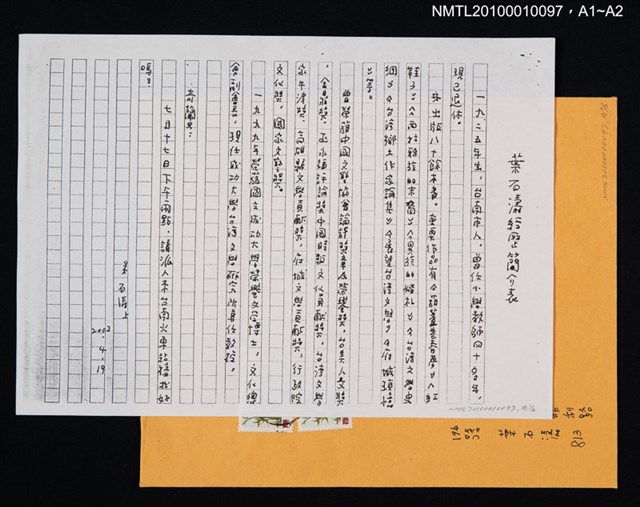 NMTL20100010097，A1~A2
葉石濤經歷簡介表
一九二五年生，台南市人，曾任小學教師四十多年，
現已退休。
共出版八十餘本書。重要作品有《葫蘆巷春夢》《紅
鞋子》《西拉雅族的末裔》《異族的婚禮》《台灣文學史
綱》《台灣鄉土作家論集》《展望台灣文學》《府城瑣憶
》等。
曾榮獲中國文藝協會論評獎章及榮譽獎，台美人文獎
，金鼎獎，巫永福評論獎中國時報文化貢獻獎，台灣文學
家牛津獎，高雄縣文學貢獻獎，府城文學貢獻獎，行政院
文化獎，國家文藝獎。
一九九九年榮獲國立成功大學榮譽文學博士，文化總
會副會長，現任成功大學台灣文學研究所兼任教授。
七月十七日下午兩點，請派人來台南火車站接我好
嗎？
葉石濤上
2002.4.19
葉石濤
813